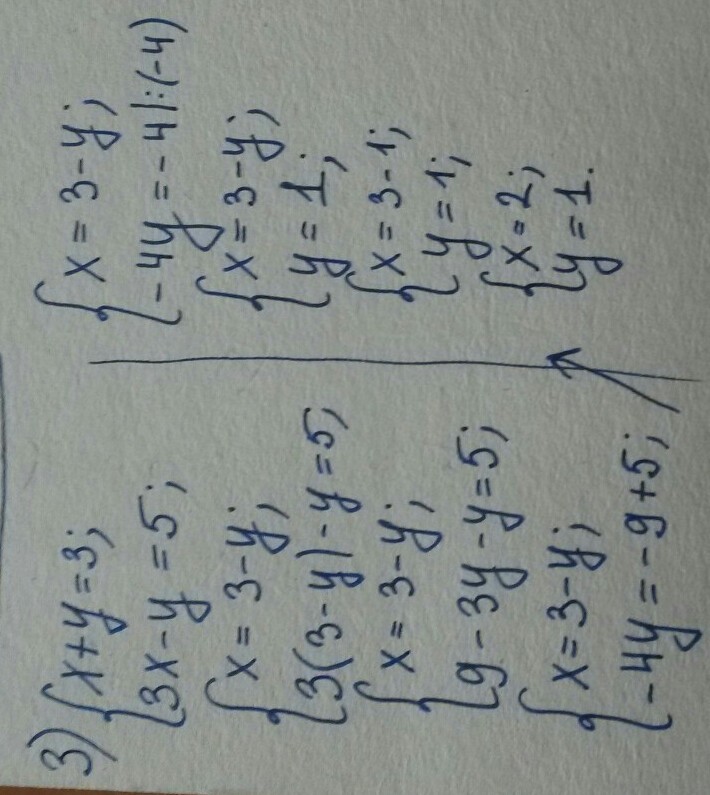 3) { x+y=3;
3x-y=5;
{ x=3-y;
3(3-y)-y=5;
{ x=3-y;
9-3y-y=5;
{ x=3-y;
-4y=-9+5;
{ x=3-y;
-4y=-4|:(-4)
{ x=3-y;
y=1;
{ x=3-1;
y=1;
{ x=2;
y=1.